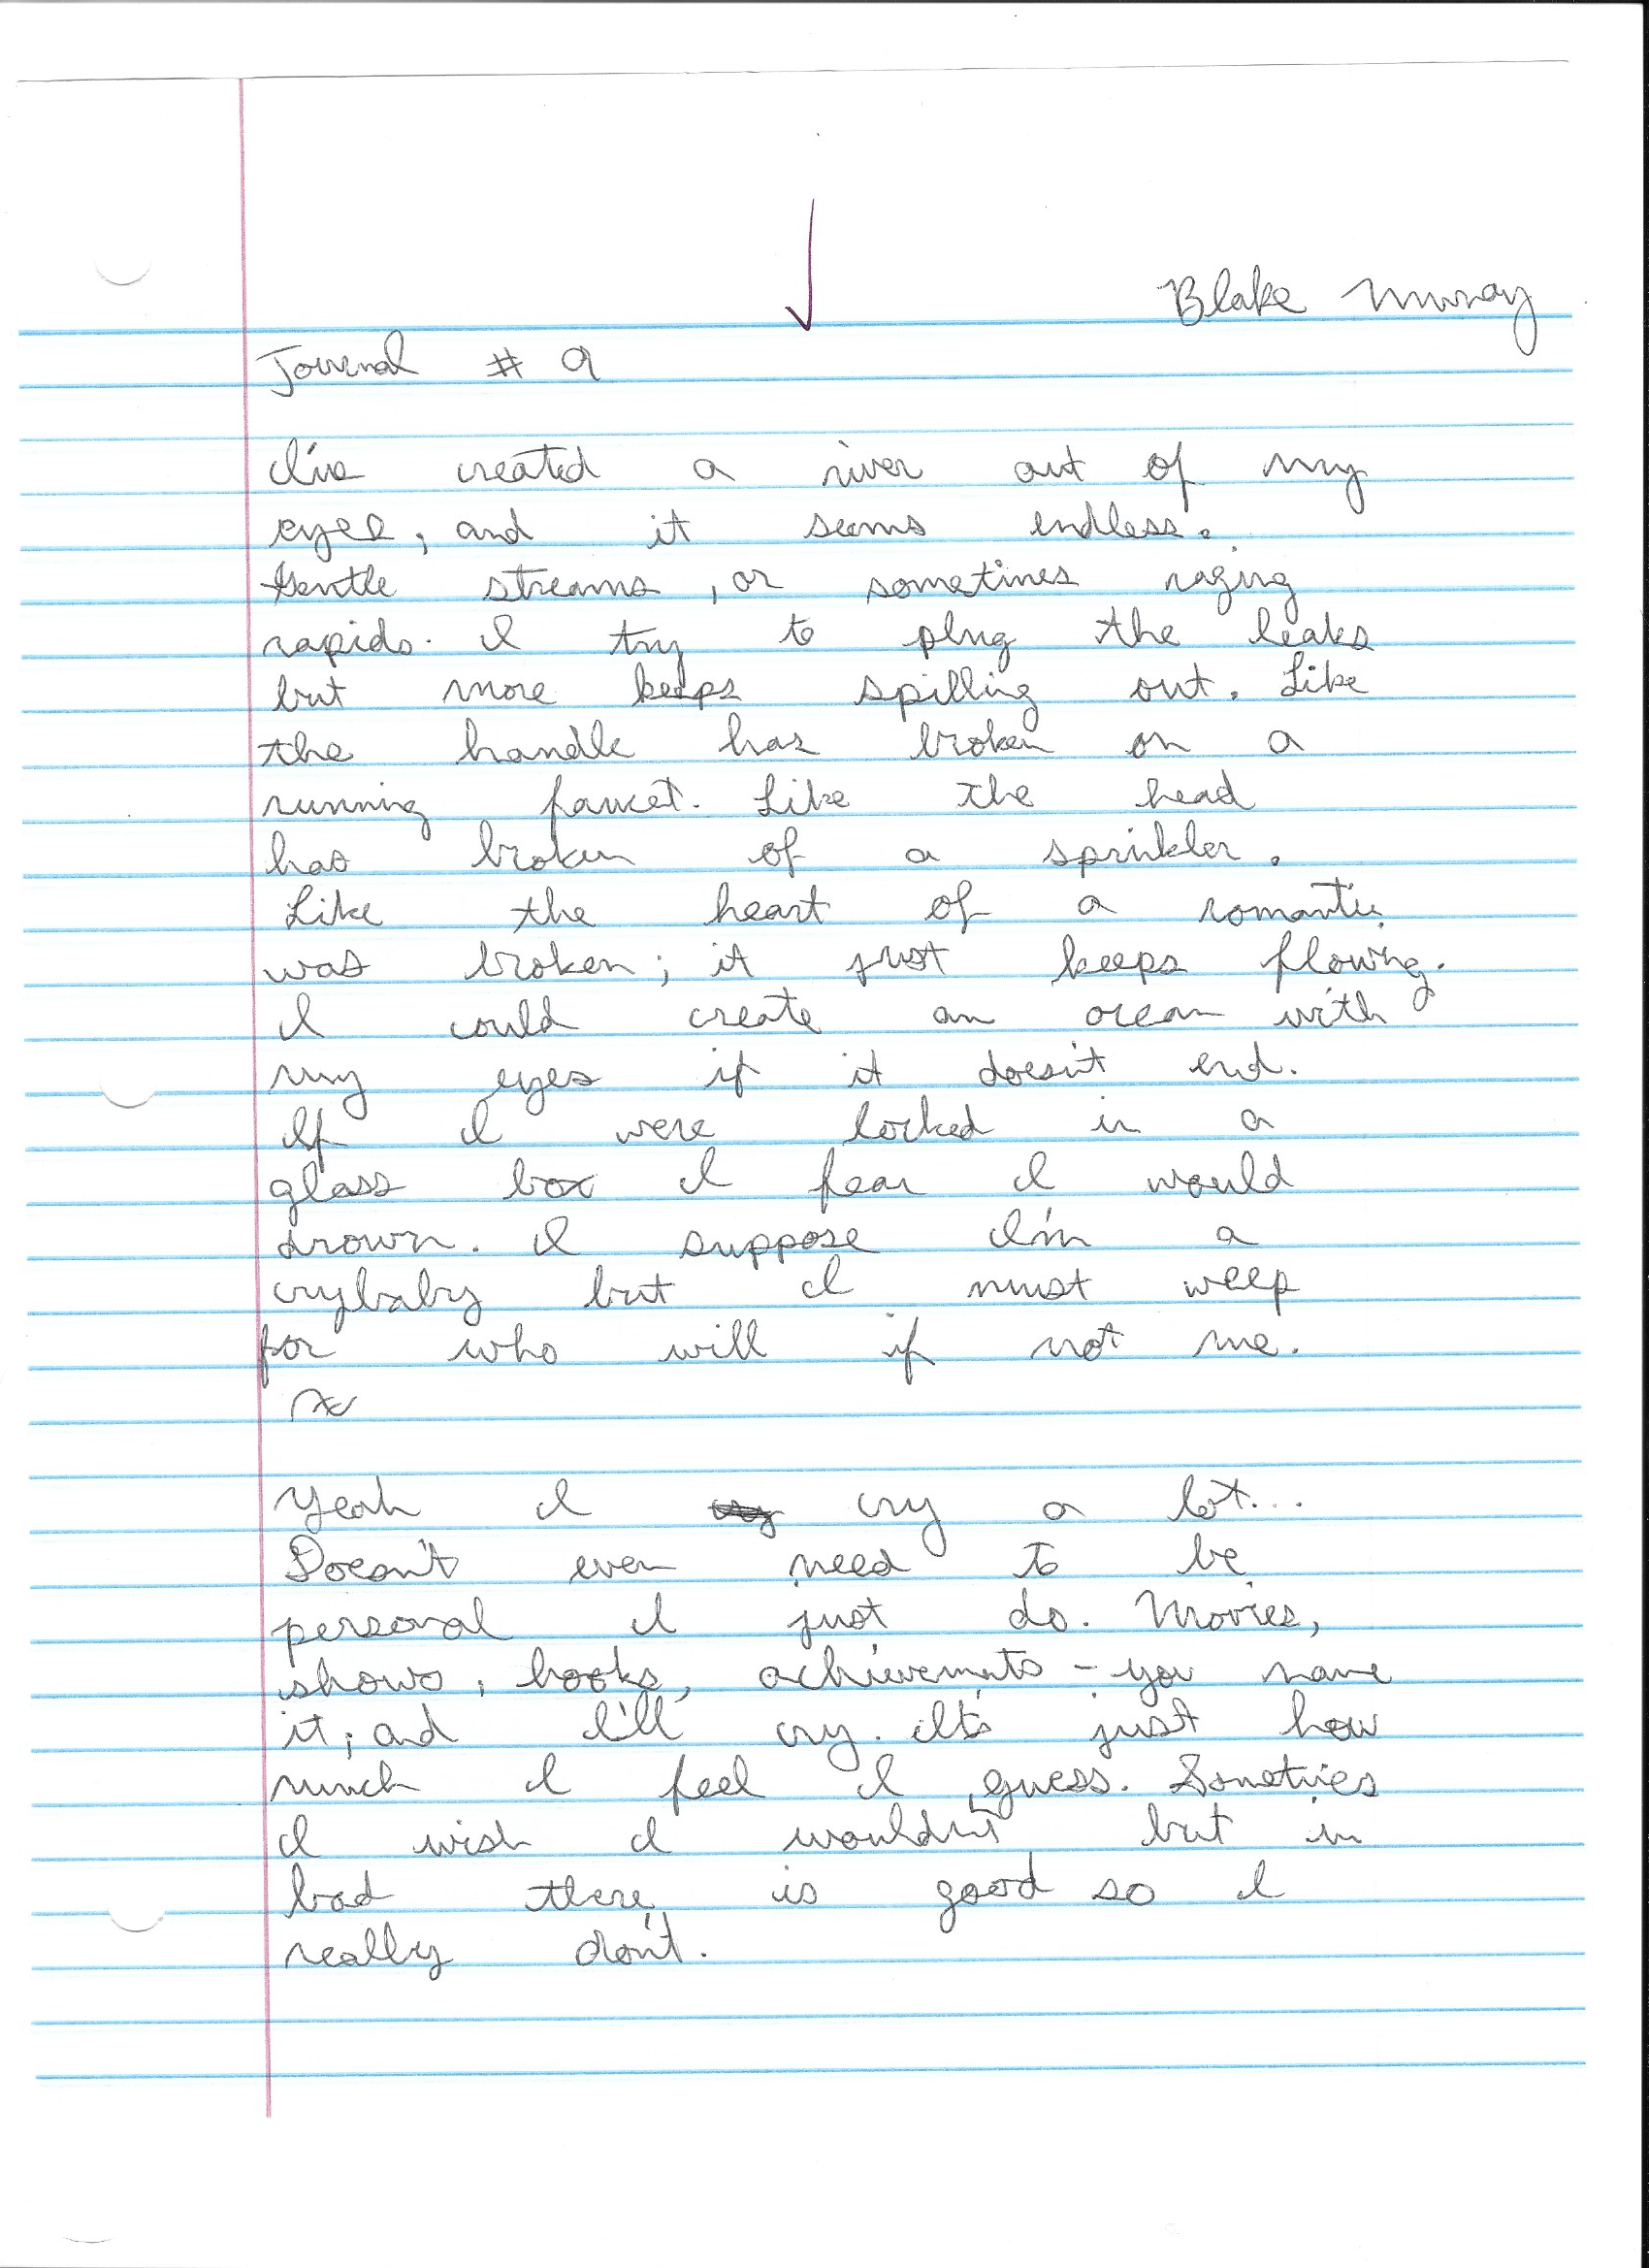 Blake Murray
Journal # 9
I've created a river out of my
eyes, and it seems endless.
Gentle streams, or sometimes raging
rapids. I try to plug the leaks
but more keeps spilling out. Like
the handle has broken on a
running faucet. Like the head
has broken of a sprinkler.
Like the heart of a romantic
was broken; it just keeps flowing.
I could create an ocean with
my eyes if it doesn't end.
If I were locked in a
glass box I fear I would
drown. I suppose I'm a
crybaby but I must weep
for who will if not me.
Yeah I cry a lot...
Doesn't even need to be
personal I just do. Movies,
shows, books, achievements - you name
it; and I'll cry. It's just how
much I feel I guess. Sometimes
I wish I wouldn't but in
bad there is good so I
really don't.